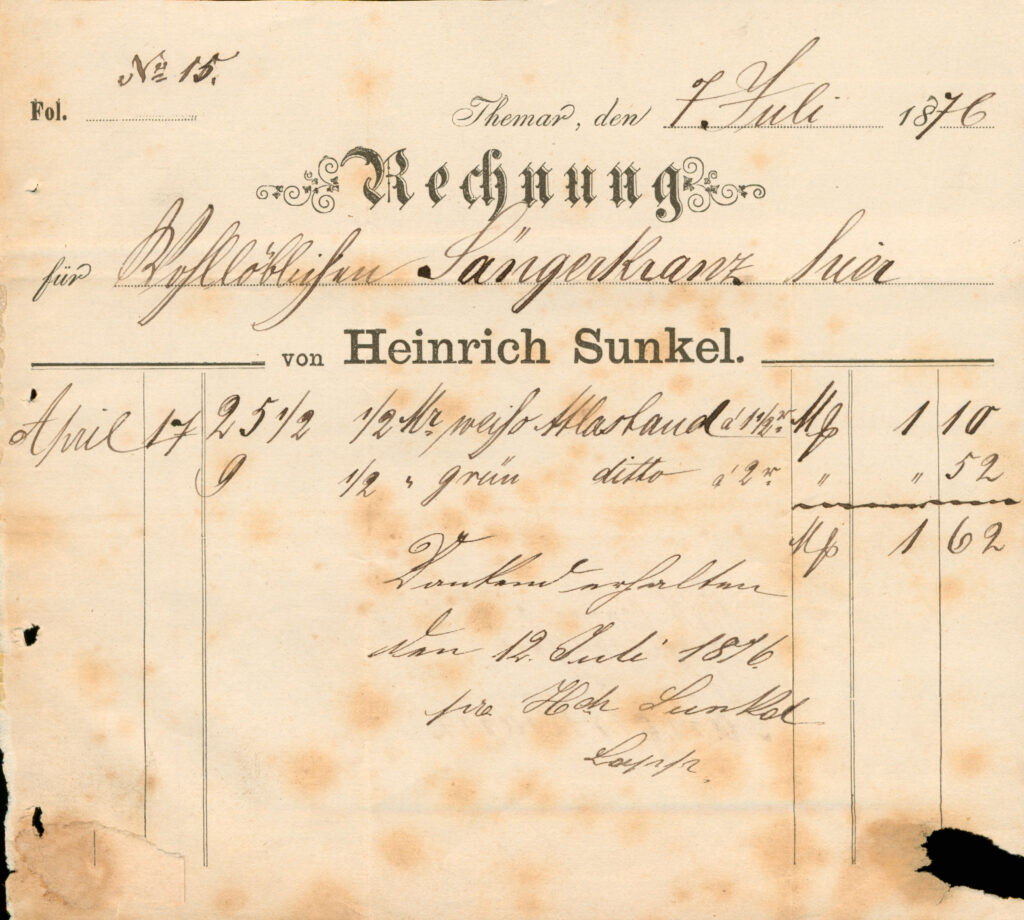 No 15.
Fol.
Themar, den 7. Juli 1876
Rechnung
für Wohllöblichen Sängerkranz hier
von Heinrich Sunkel.
April 17 25 1/2 1/2 Mr weiß Atlasband á 1 1/2 r Mk 1 10
9 1/2 " grün ditto á 2 r " " 52
Mk 1 62
Dankend erhalten
den 12. Juli 1876.
pra Hch Sunkel
Lapp.